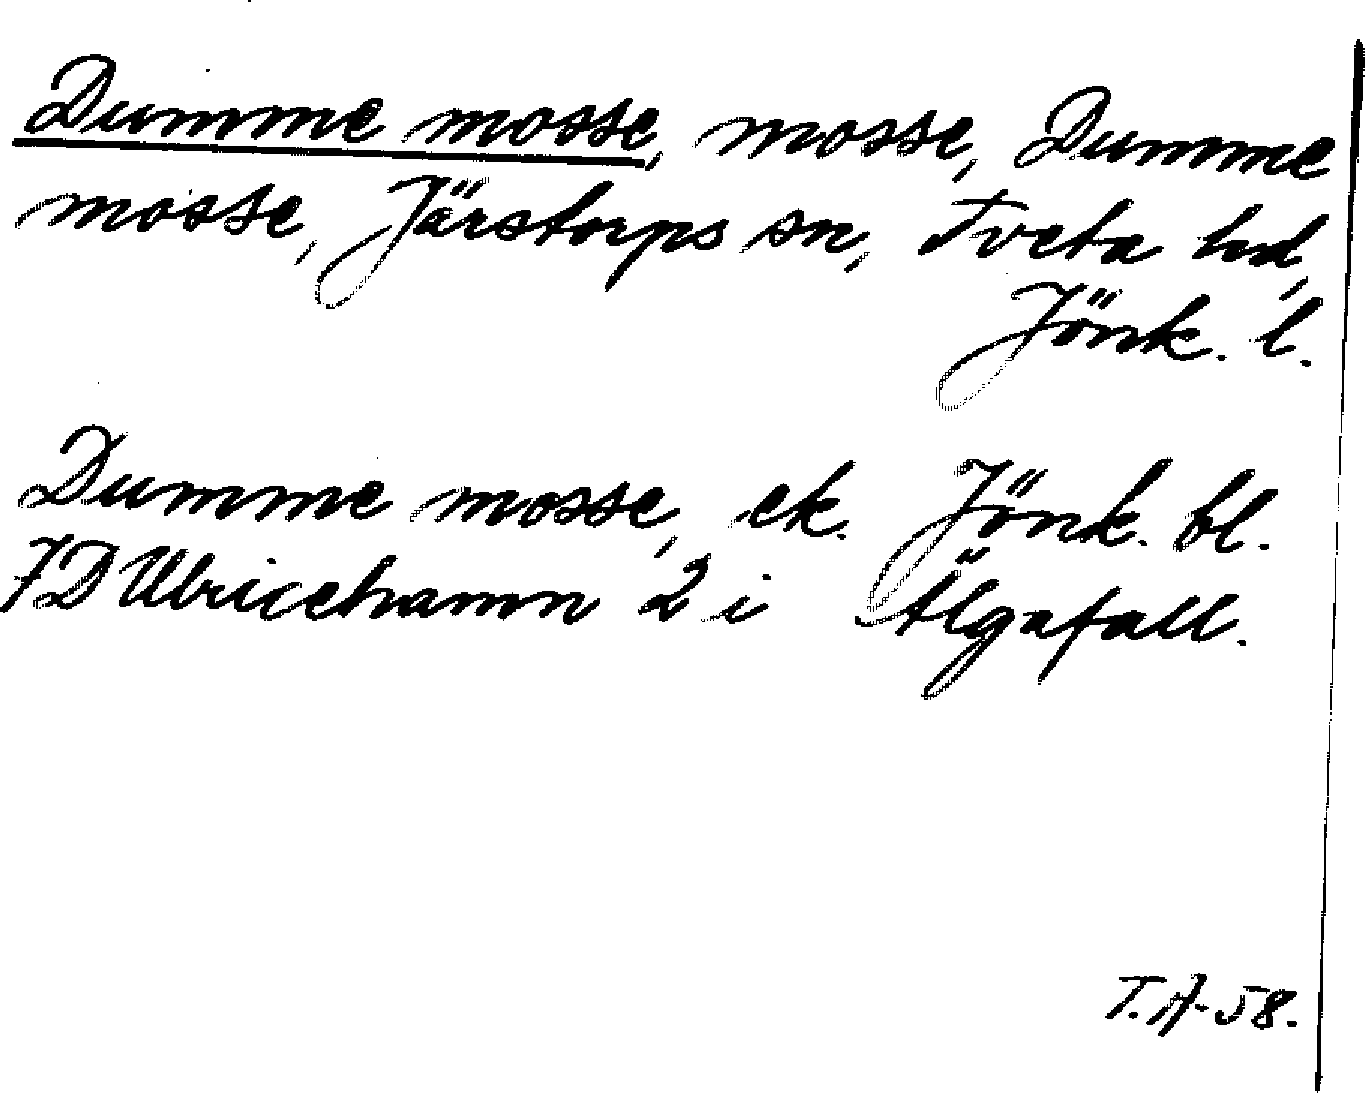 Dumme mosse, mosse, Dumme
mosse, Järstorps sn, Tveta hd,
Jönk. l.
Dumme mosse, ek. Jönk. bl.
7D Ulricehamn 2 i Älgafall.
T.A-58.